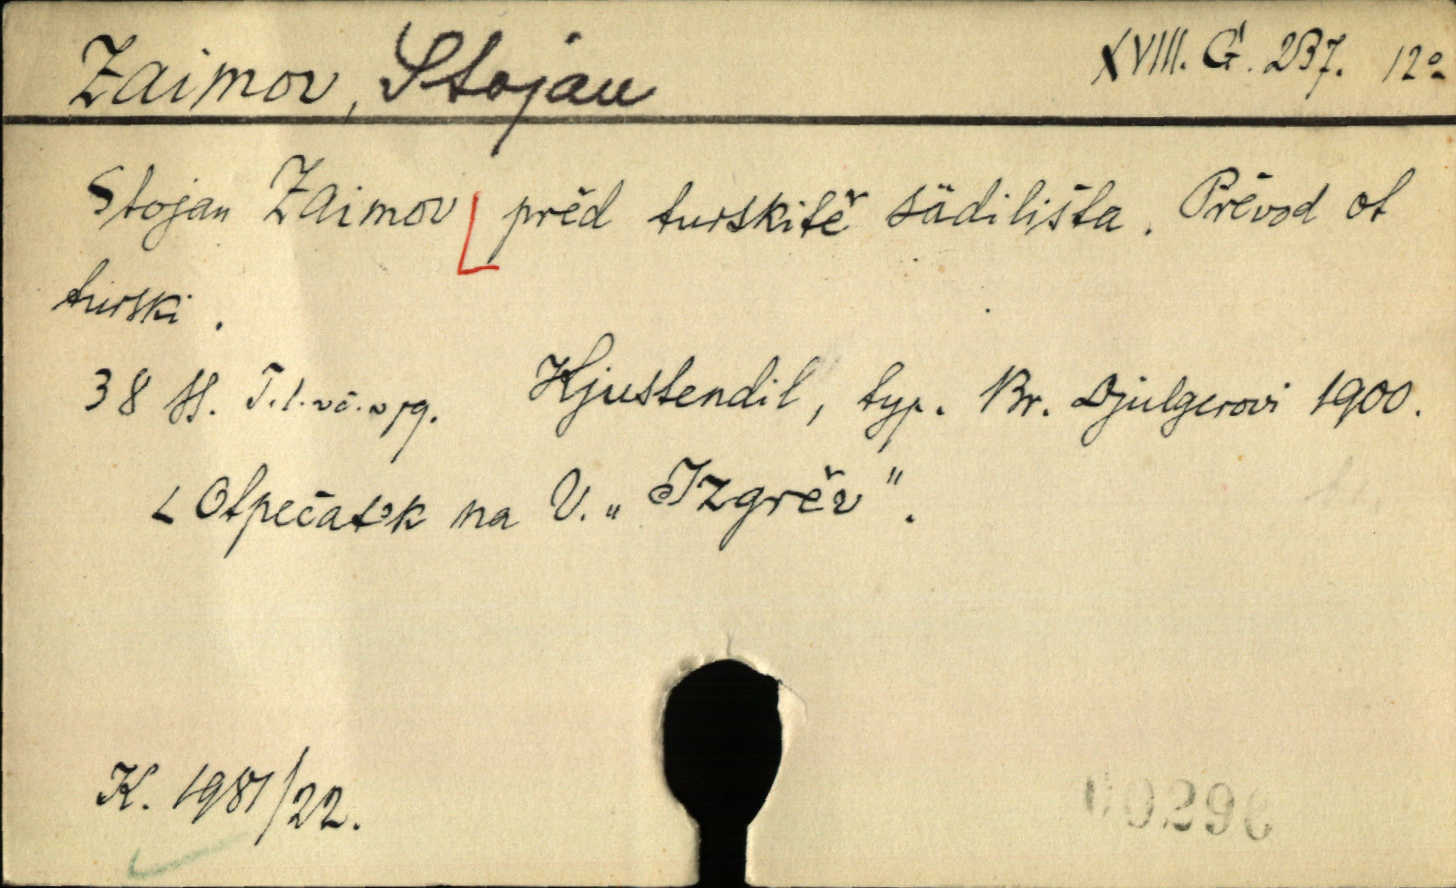 Zaimov, Stojan XVIII. G. 237. 12°
Stojan Zaimov prěd turskitě sădilišta. Prěvod ot
turski.
38 ss. Kjustendil, typ. Br. Djulgerovi 1900.
Otpečatъk na V. „Izgrěv“.
K. 1981/22.